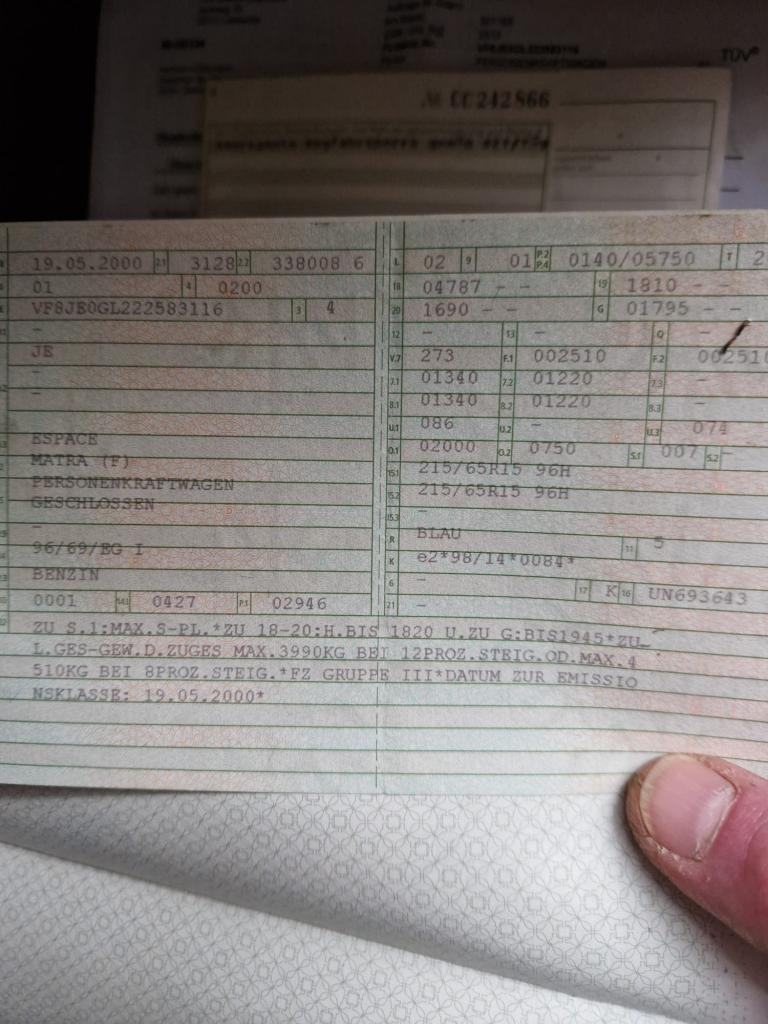 TÜV®
№ CC242866
19.05.2000 2.1 3128 2.2 338008 6
01 4 0200
VF8JE0GL222583116 3 4
-
JE
-
-
ESPACE
MATRA (F)
PERSONENKRAFTWAGEN
GESCHLOSSEN
-
96/69/EG I
BENZIN
0001 14.1 0427 P.1 02946
L 02 9 01 P.2 P.4 0140/05750 T
18 04787 - - 19 1810 - -
20 1690 - - G 01795 - -
12 - 13 - Q -
V.7 273 F.1 002510 F.2 002510
7.1 01340 7.2 01220 7.3 -
8.1 01340 8.2 01220 8.3 -
U.1 086 U.2 - U.3 074
O.1 02000 O.2 0750 S.1 007 S.2 -
15.1 215/65R15 96H
15.2 215/65R15 96H
15.3 -
R BLAU 11 5
K e2*98/14*0084*
6 - 17 K 16 UN693643
21 -
ZU S.1:MAX.S-PL.*ZU 18-20:H.BIS 1820 U.ZU G:BIS1945*ZU
L.GES-GEW.D.ZUGES MAX.3990KG BEI 12PROZ.STEIG.OD.MAX.4
510KG BEI 8PROZ.STEIG.*FZ GRUPPE III*DATUM ZUR EMISSIO
NSKLASSE: 19.05.2000*